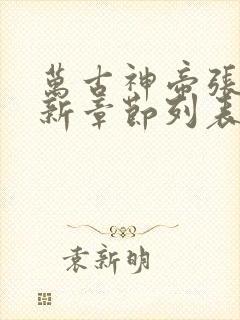 萬古神帝張
新章節列表
袁新明